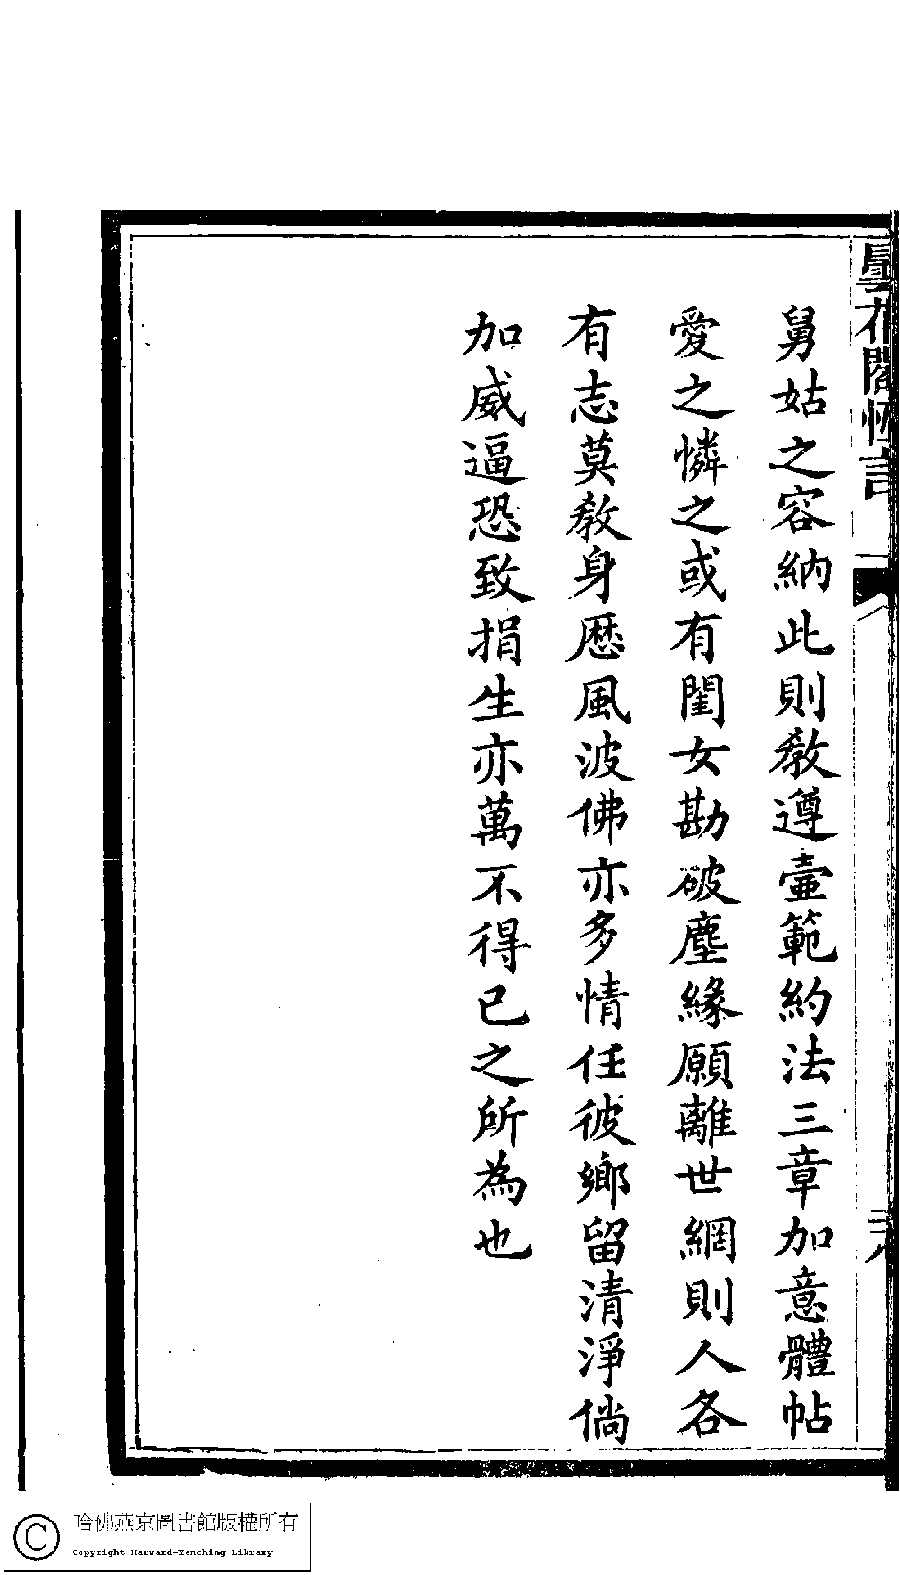 曇花閣恒言
舅姑之容納此則教遵壼範約法三章加意體帖
愛之憐之或有閨女勘破塵緣願離世網則人各
有志莫教身厯風波佛亦多情任彼鄉留清淨倘
加威逼恐致捐生亦萬不得已之所為也
哈佛燕京圖書館版權所有
Copyright Harvard-Yenching Library